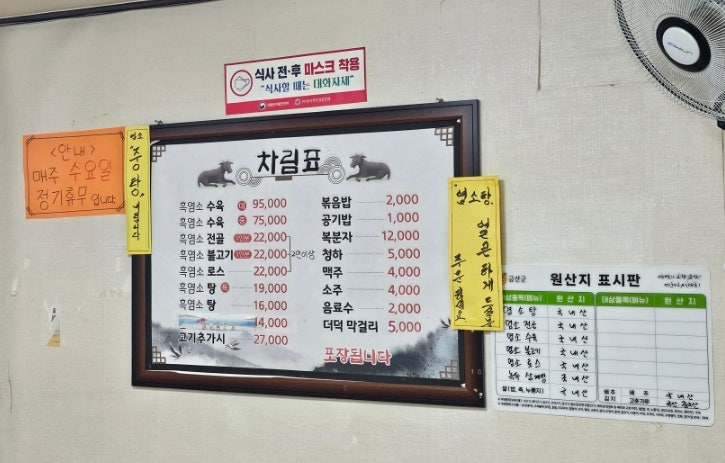 식사 전·후 마스크 착용
"식사할 때는 대화자제"
<안내>
매주 수요일
정기휴무 입니다
차림표
흑염소 수육 대 95,000
흑염소 수육 중 75,000
흑염소 전골 1인분 22,000
흑염소 불고기 1인분 22,000
2인이상
흑염소 로스 22,000
흑염소 탕 특 19,000
흑염소 탕 16,000
14,000
고기추가시 27,000
볶음밥 2,000
공기밥 1,000
복분자 12,000
청하 5,000
맥주 4,000
소주 4,000
음료수 2,000
더덕 막걸리 5,000
포장됩니다
염소탕
얼큰하게
금산군
원산지 표시판
대상품목(메뉴) 원산지 대상품목(메뉴) 원산지
염소탕 국내산
염소 전골 국내산
염소 수육 국내산
염소 불고기 국내산
염소 로스 국내산
국내산
쌀(밥, 죽, 누룽지) 국내산
배추김치 배추 고춧가루 국내산